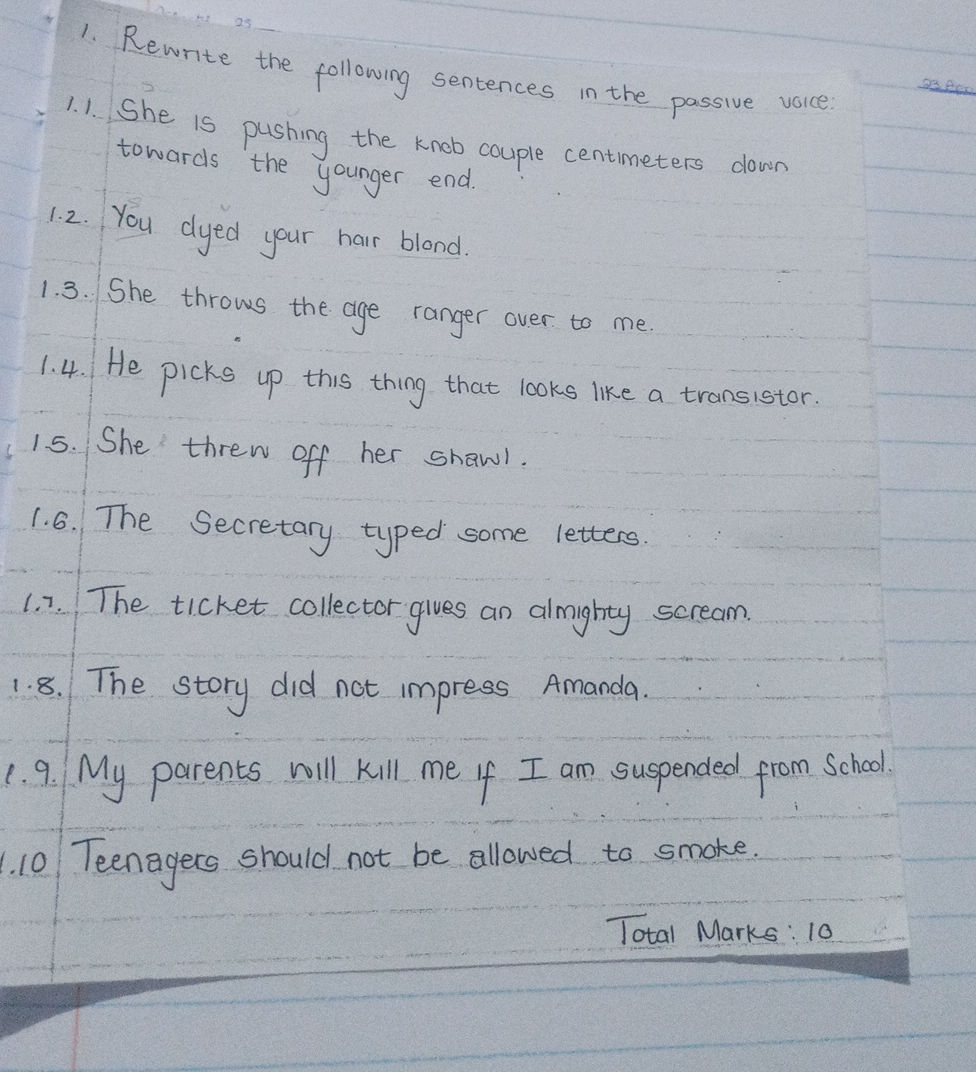 25
1. Rewrite the following sentences in the passive voice:
1.1. She is pushing the knob couple centimeters down
towards the younger end.
1.2. You dyed your hair blond.
1.3. She throws the age ranger over to me.
1.4. He picks up this thing that looks like a transistor.
1.5. She threw off her shawl.
1.6. The Secretary typed some letters.
1.7. The ticket collector gives an almighty scream.
1.8. The story did not impress Amanda.
1.9. My parents will kill me if I am suspended from School.
1.10 Teenagers should not be allowed to smoke.
Total Marks: 10